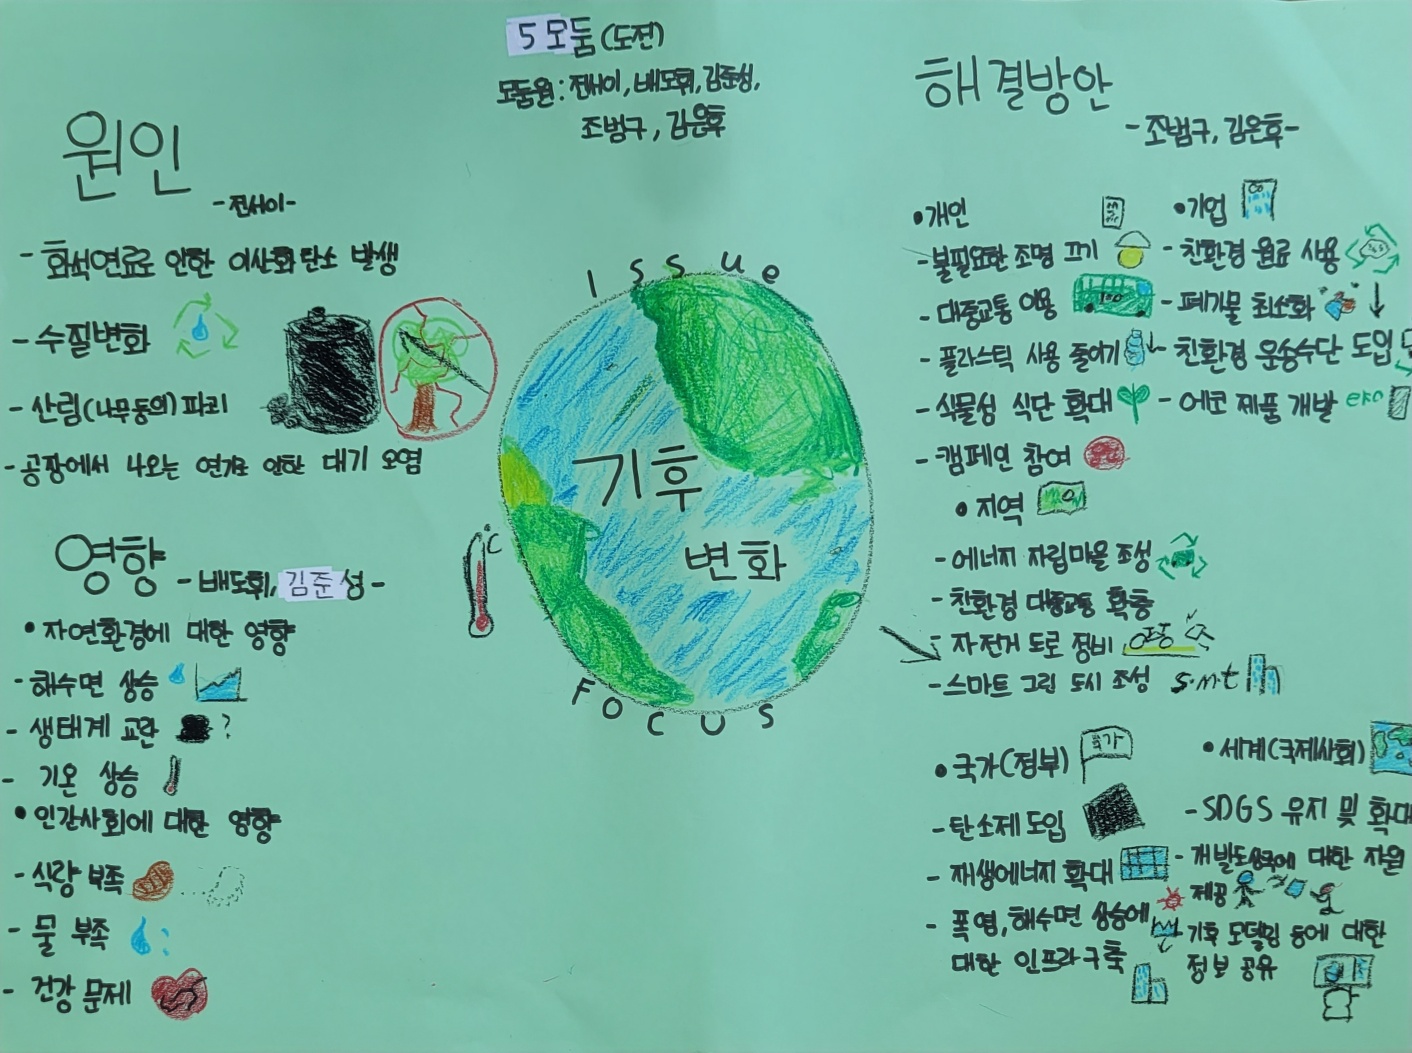 5 모둠(도전)
모둠원 : 전서이, 배도휘, 김준성,
조범구, 김은후
원인
-전서이-
- 화석연료로 인한 이산화탄소 발생
- 수질변화
- 산림(나무등의)파괴
- 공장에서 나오는 연기로 인한 대기 오염
영향
- 배도휘, 김준성-
• 자연환경에 대한 영향
- 해수면 상승
- 생태계 교란 ?
- 기온 상승
• 인간사회에 대한 영향
- 식량 부족
- 물 부족
- 건강 문제
Issue
기후
변화
FOCUS
°C
해결방안
- 조범구, 김은후-
• 개인
- 불필요한 조명 끄기
- 대중교통 이용
- 플라스틱 사용 줄이기
- 식물성 식단 확대
- 캠페인 참여
• 기업
- 친환경 원료 사용
- 폐기물 최소화
- 친환경 운송수단 도입
- 에코 제품 개발
• 지역
- 에너지 자립마을 조성
- 친환경 대중교통 확충
- 자전거 도로 정비
- 스마트 그린 도시 조성 s.m.t
• 국가(정부) 국가
- 탄소제 도입
- 재생에너지 확대
- 폭염, 해수면 상승에
대한 인프라 구축
• 세계(국제사회)
- SDGS 유지 및 확대
- 개발도상국에 대한 자원
제공
기후 모델링 등에 대한
정보 공유